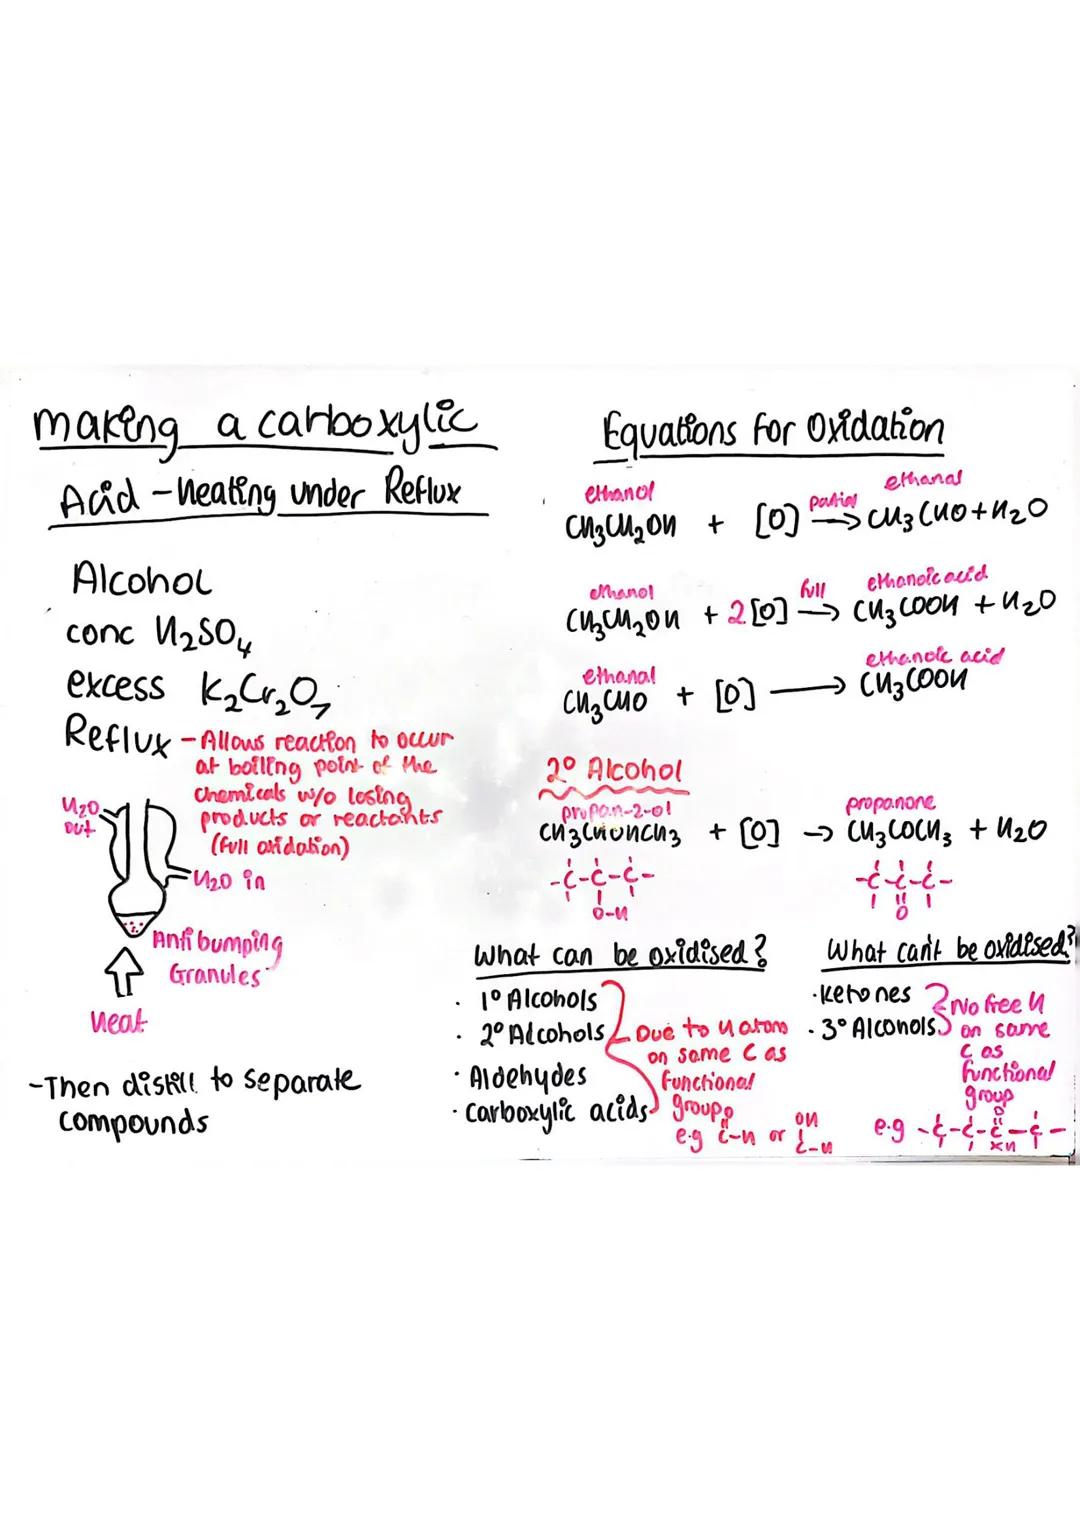 making a carboxylic
Acid - Heating under Reflux
Alcohol
conc H₂SO₄
excess K₂Cr₂O₇
Reflux - Allows reaction to occur
at boiling point of the
chemicals w/o losing
products or reactants
(full oxidation)
H₂O
out
H₂O in
Anti bumping
Granules
Heat
-Then distill to separate
compounds
Equations for Oxidation
ethanol partial ethanal
CH₃CH₂OH + [O] → CH₃CHO + H₂O
ethanol full ethanoic acid
CH₃CH₂OH + 2[O] → CH₃COOH + H₂O
ethanal ethanoic acid
CH₃CHO + [O] → CH₃COOH
2° Alcohol
propan-2-ol propanone
CH₃CHOHCH₃ + [O] → CH₃COCH₃ + H₂O
-C-C-C- -C-C-C-
O-H O
What can be oxidised?
· 1° Alcohols
· 2° Alcohols
· Aldehydes
· Carboxylic acids
Due to H atom
on same C as
functional
group
e.g C-H or C-H
OH
What can't be oxidised?
· Ketones
· 3° Alcohols
No free H
on same
C as
functional
group
e.g -C-C-C-C-
O
XH